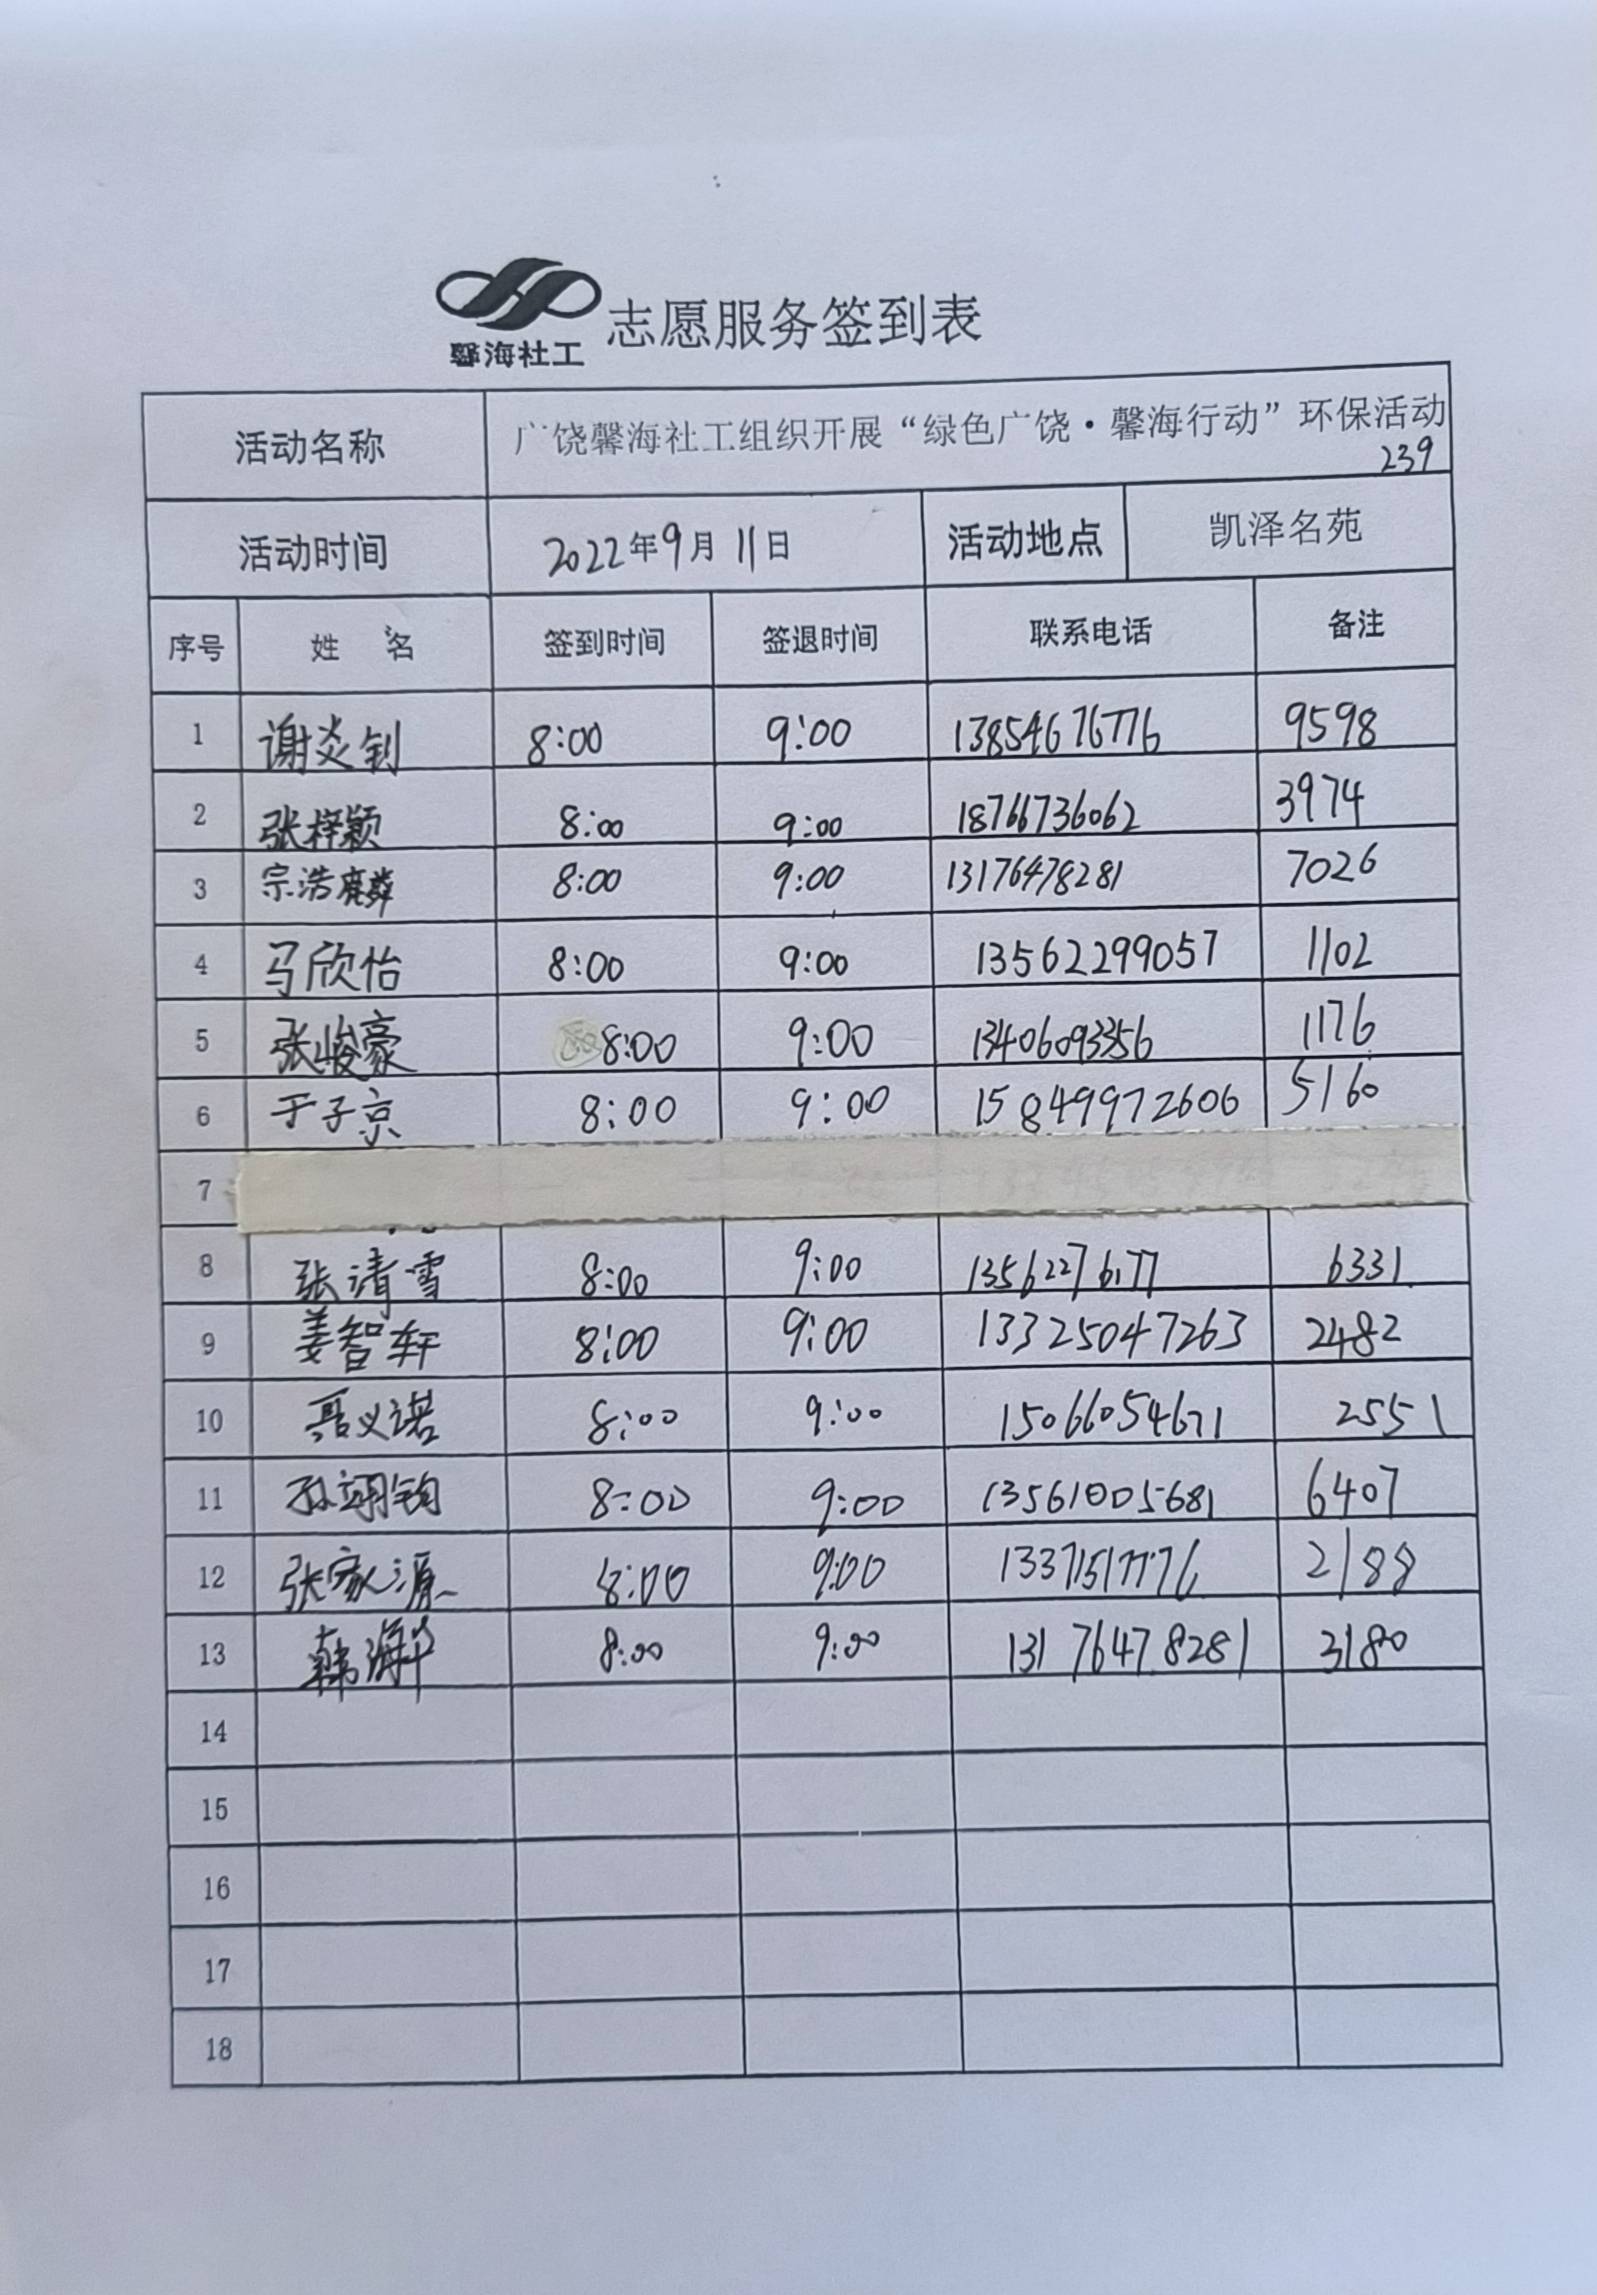 馨海社工
志愿服务签到表
活动名称 广饶馨海社工组织开展“绿色广饶·馨海行动”环保活动
239
活动时间 2022年9月11日 活动地点 凯泽名苑
序号 姓 名 签到时间 签退时间 联系电话 备注
1 谢炎钊 8:00 9:00 13854676776 9598
2 张梓颖 8:00 9:00 18766736062 3974
3 宗浩麟 8:00 9:00 13176478281 7026
4 马欣怡 8:00 9:00 13562299057 1102
5 张峻豪 8:00 9:00 13406093356 1176
6 于子京 8:00 9:00 15849972606 5160
7
8 张清雪 8:00 9:00 13562276177 6331
9 姜智轩 8:00 9:00 13325047263 2482
10 聂义诺 8:00 9:00 15066054671 2551
11 孙翊钧 8:00 9:00 13561005681 6407
12 张家源 8:00 9:00 13371517776 2188
13 韩 8:00 9:00 13176478281 3180
14
15
16
17
18